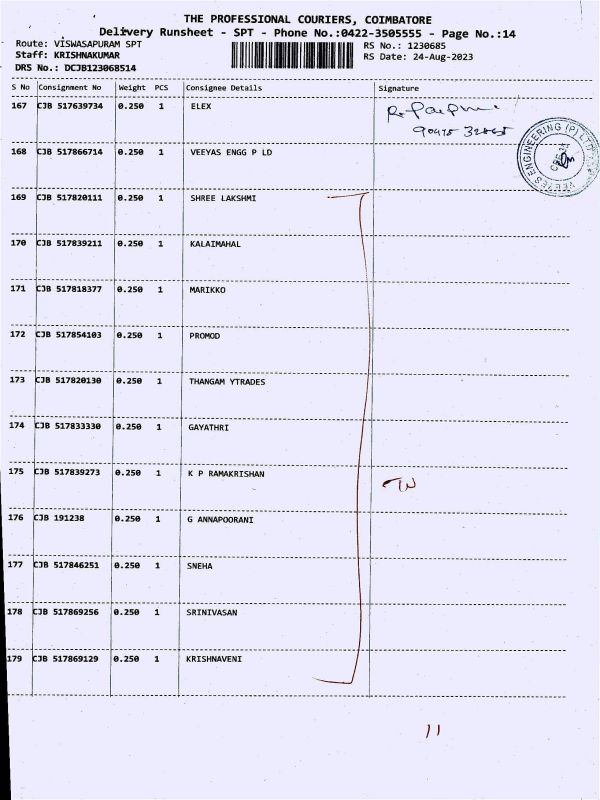 THE PROFESSIONAL COURIERS, COIMBATORE
Delivery Runsheet - SPT - Phone No.:0422-3505555 - Page No.:14
Route: VISWASAPURAM SPT
RS No.: 1230685
Staff: KRISHNAKUMAR
RS Date: 24-Aug-2023
DRS No.: DCJB123068514
S No Consignment No Weight PCS Consignee Details Signature
167 CJB 517639734 0.250 1 ELEX
168 CJB 517866714 0.250 1 VEEYAS ENGG P LD
ENGINEERING (P) LTD
169 CJB 517820111 0.250 1 SHREE LAKSHMI
170 CJB 517839211 0.250 1 KALAIMAHAL
171 CJB 517818377 0.250 1 MARIKKO
172 CJB 517854103 0.250 1 PROMOD
173 CJB 517820130 0.250 1 THANGAM YTRADES
174 CJB 517833330 0.250 1 GAYATHRI
175 CJB 517839273 0.250 1 K P RAMAKRISHAN
176 CJB 191238 0.250 1 G ANNAPOORANI
177 CJB 517846251 0.250 1 SNEHA
178 CJB 517869256 0.250 1 SRINIVASAN
179 CJB 517869129 0.250 1 KRISHNAVENI
11